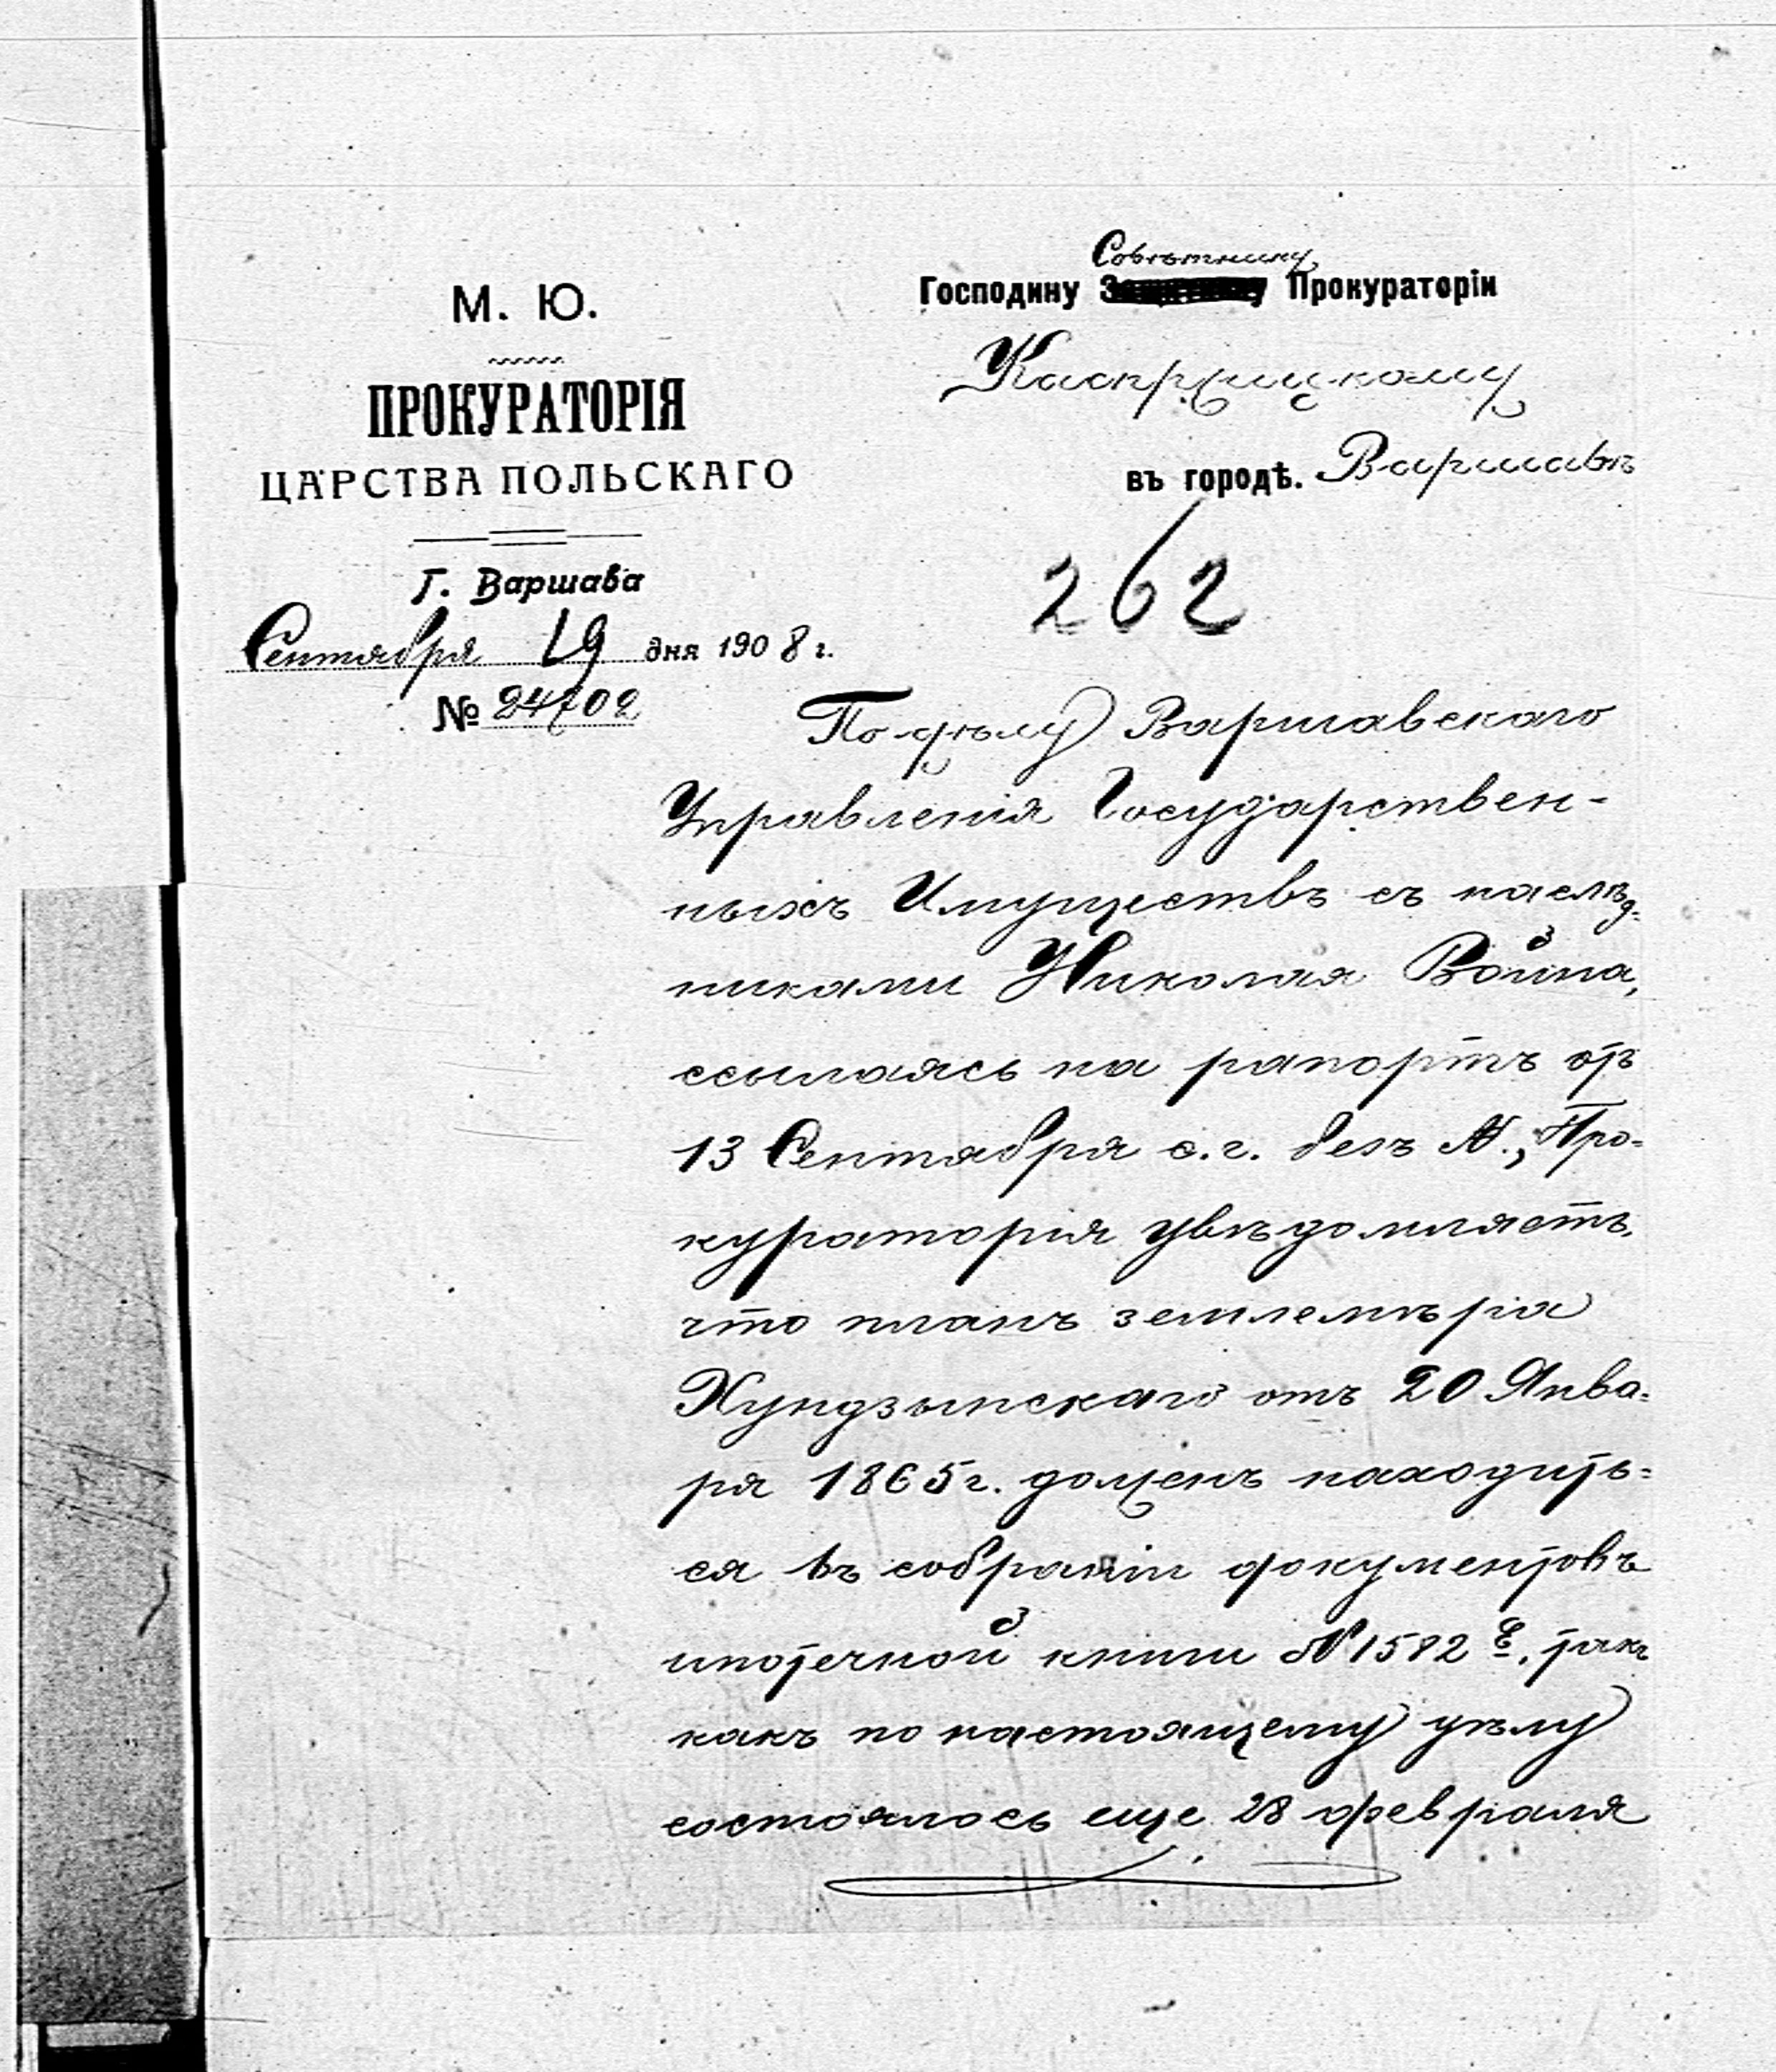 М. Ю.
ПРОКУРАТОРІЯ
ЦАРСТВА ПОЛЬСКАГО
Г. Варшава
Сентября 19 дня 1908 г.
№ 24702
Совѣтнику
Господину Прокураторіи
Каспржицкому
въ городѣ. Варшавѣ
262
По дѣлу Варшавскаго
Управленія Государствен-
ныхъ Имуществъ съ наслѣд-
никами Николая Война,
ссылаясь на рапортъ отъ
13 Сентября с. г. безъ №, Про-
кураторія увѣдомляетъ,
что планъ землемѣра
Хундзынскаго отъ 20 Янва-
ря 1865 г. долженъ находить-
ся въ собраніи документовъ
ипотечной книги № 1582 Е, такъ
какъ по настоящему дѣлу
состоялось еще 28 февраля